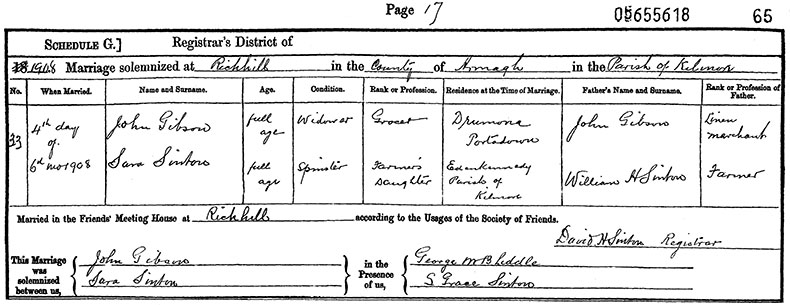 Page 17 05655618 65
SCHEDULE G.] Registrar's District of
1908 Marriage solemnized at Richhill in the County of Armagh in the Parish of Kilmore
No. When Married. Name and Surname. Age. Condition. Rank or Profession. Residence at the Time of Marriage. Father's Name and Surname. Rank or Profession of Father.
33 4th day of 6th mo 1908 John Gibson full age Widower Grocer Drumona Portadown John Gibson Linen merchant
Sara Sinton full age Spinster Farmer's daughter Edenkennedy Parish of Kilmore William H Sinton Farmer
Married in the Friends' Meeting House at Richhill according to the Usages of the Society of Friends.
David H Sinton Registrar
This Marriage was solemnized between us, John Gibson in the Presence of us, George McB Liddle
Sara Sinton S Grace Sinton